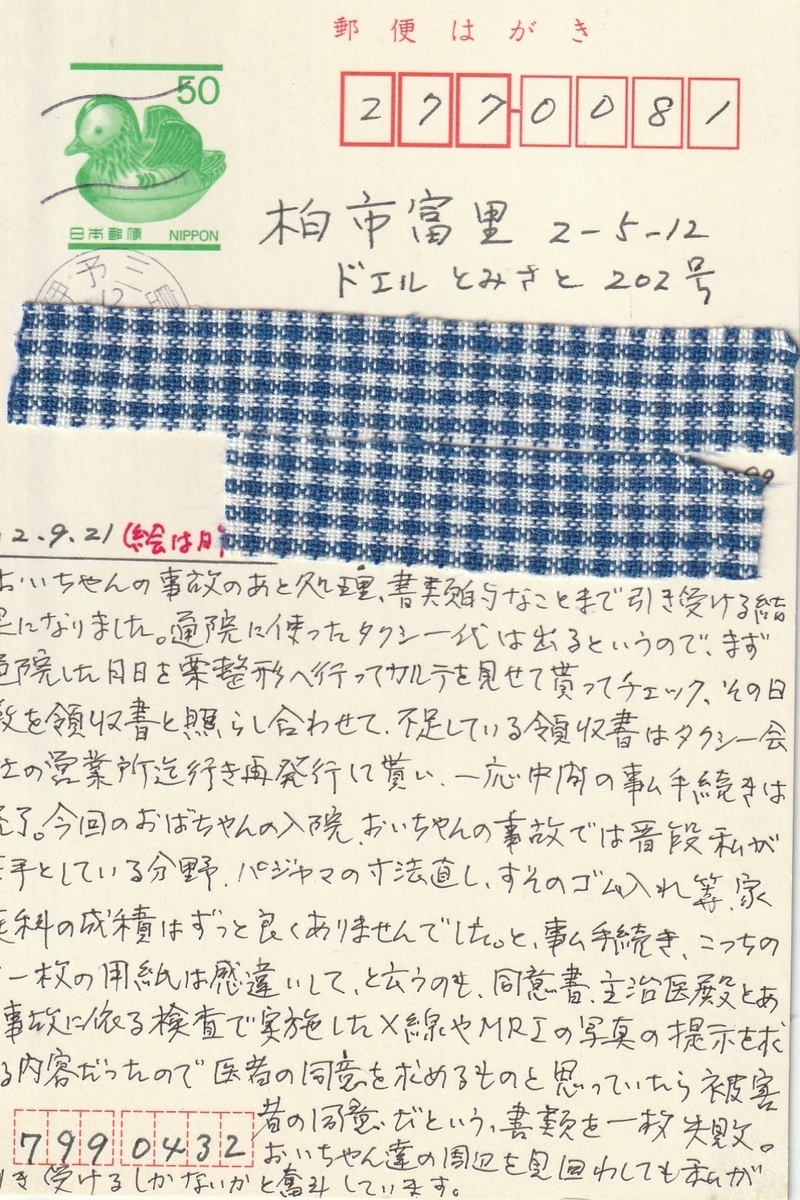 郵便はがき
50
277-0081
日本郵便 NIPPON
柏市富里 2-5-12
ドエルとみさと 202号
予三
12
2.9.21 (絵は昨
おいちゃんの事故のあと処理、書類的なことまで引き受ける結
果になりました。通院に使ったタクシー代は出るというので、まず
通院した月日を栗整形へ行ってカルテを見せて貰ってチェック、その日
数を領収書と照らし合わせて、不足している領収書はタクシー会
社の営業所迄行き再発行して貰い、一応中間の事ム手続きは
完了。今回のおばちゃんの入院、おいちゃんの事故では普段私が
苦手としている分野、パジャマの寸法直し、すそのゴム入れ等、家
庭科の成積はずっと良くありませんでした。と、事ム手続き、こっちの
一枚の用紙は感違いして、と云うのも、同意書、主治医殿とあ
事故に依る検査で実施したX線やMRIの写真の提示を求
る内容だったので医者の同意を求めるものと思っていたら被害
者の同意だという、書類を一枚失敗。
7990432
おいちゃん達の周辺を見回わしても私が
引き受けるしかないかと奮斗しています。